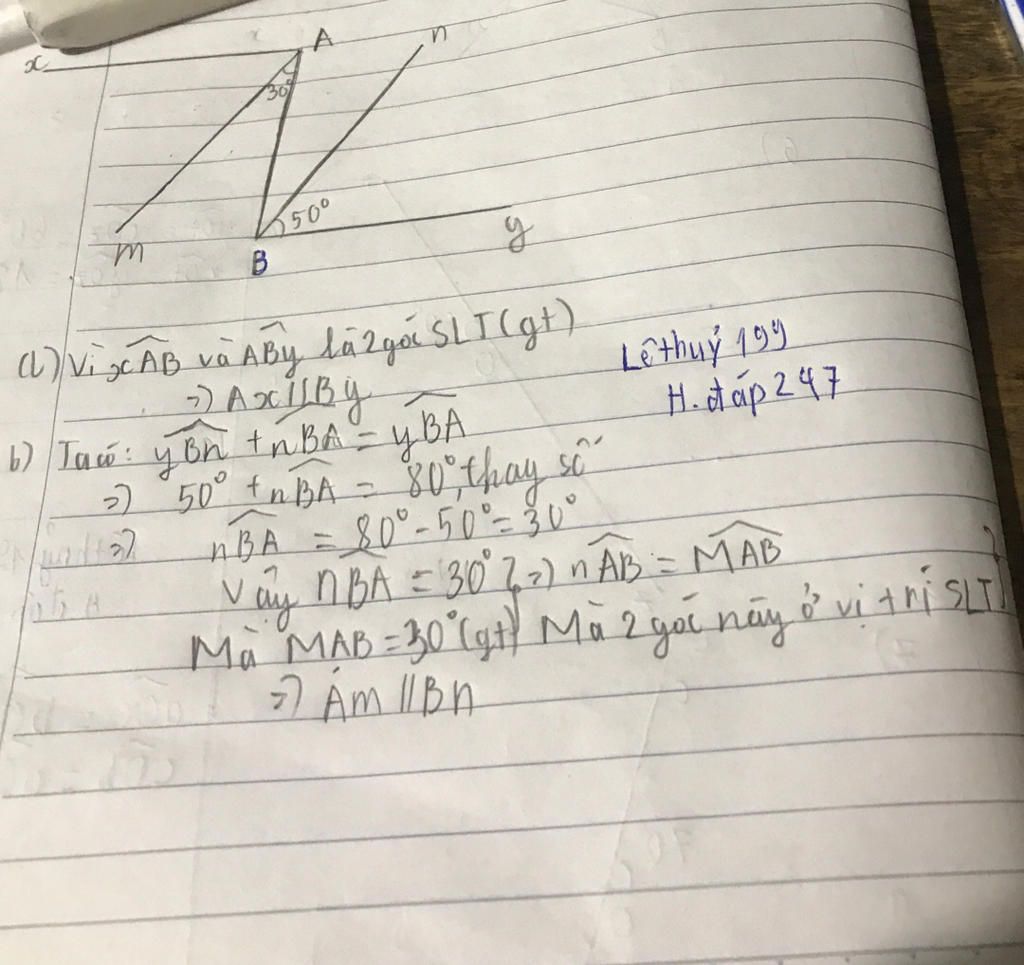 x
A
n
30°
50°
m
B
y
a) Vì xAB và ABy là 2 góc SLT (gt)
=> Ax // By
Lêthuỷ 199
H. đáp 247
b) Ta có: yBn + nBA = yBA
=> 50° + nBA = 80°, thay số
=> nBA = 80° - 50° = 30°
Vậy nBA = 30° } => nAB = MAB
Mà MAB = 30° (gt) Mà 2 góc này ở vị trí SLT }
=> Am // Bn